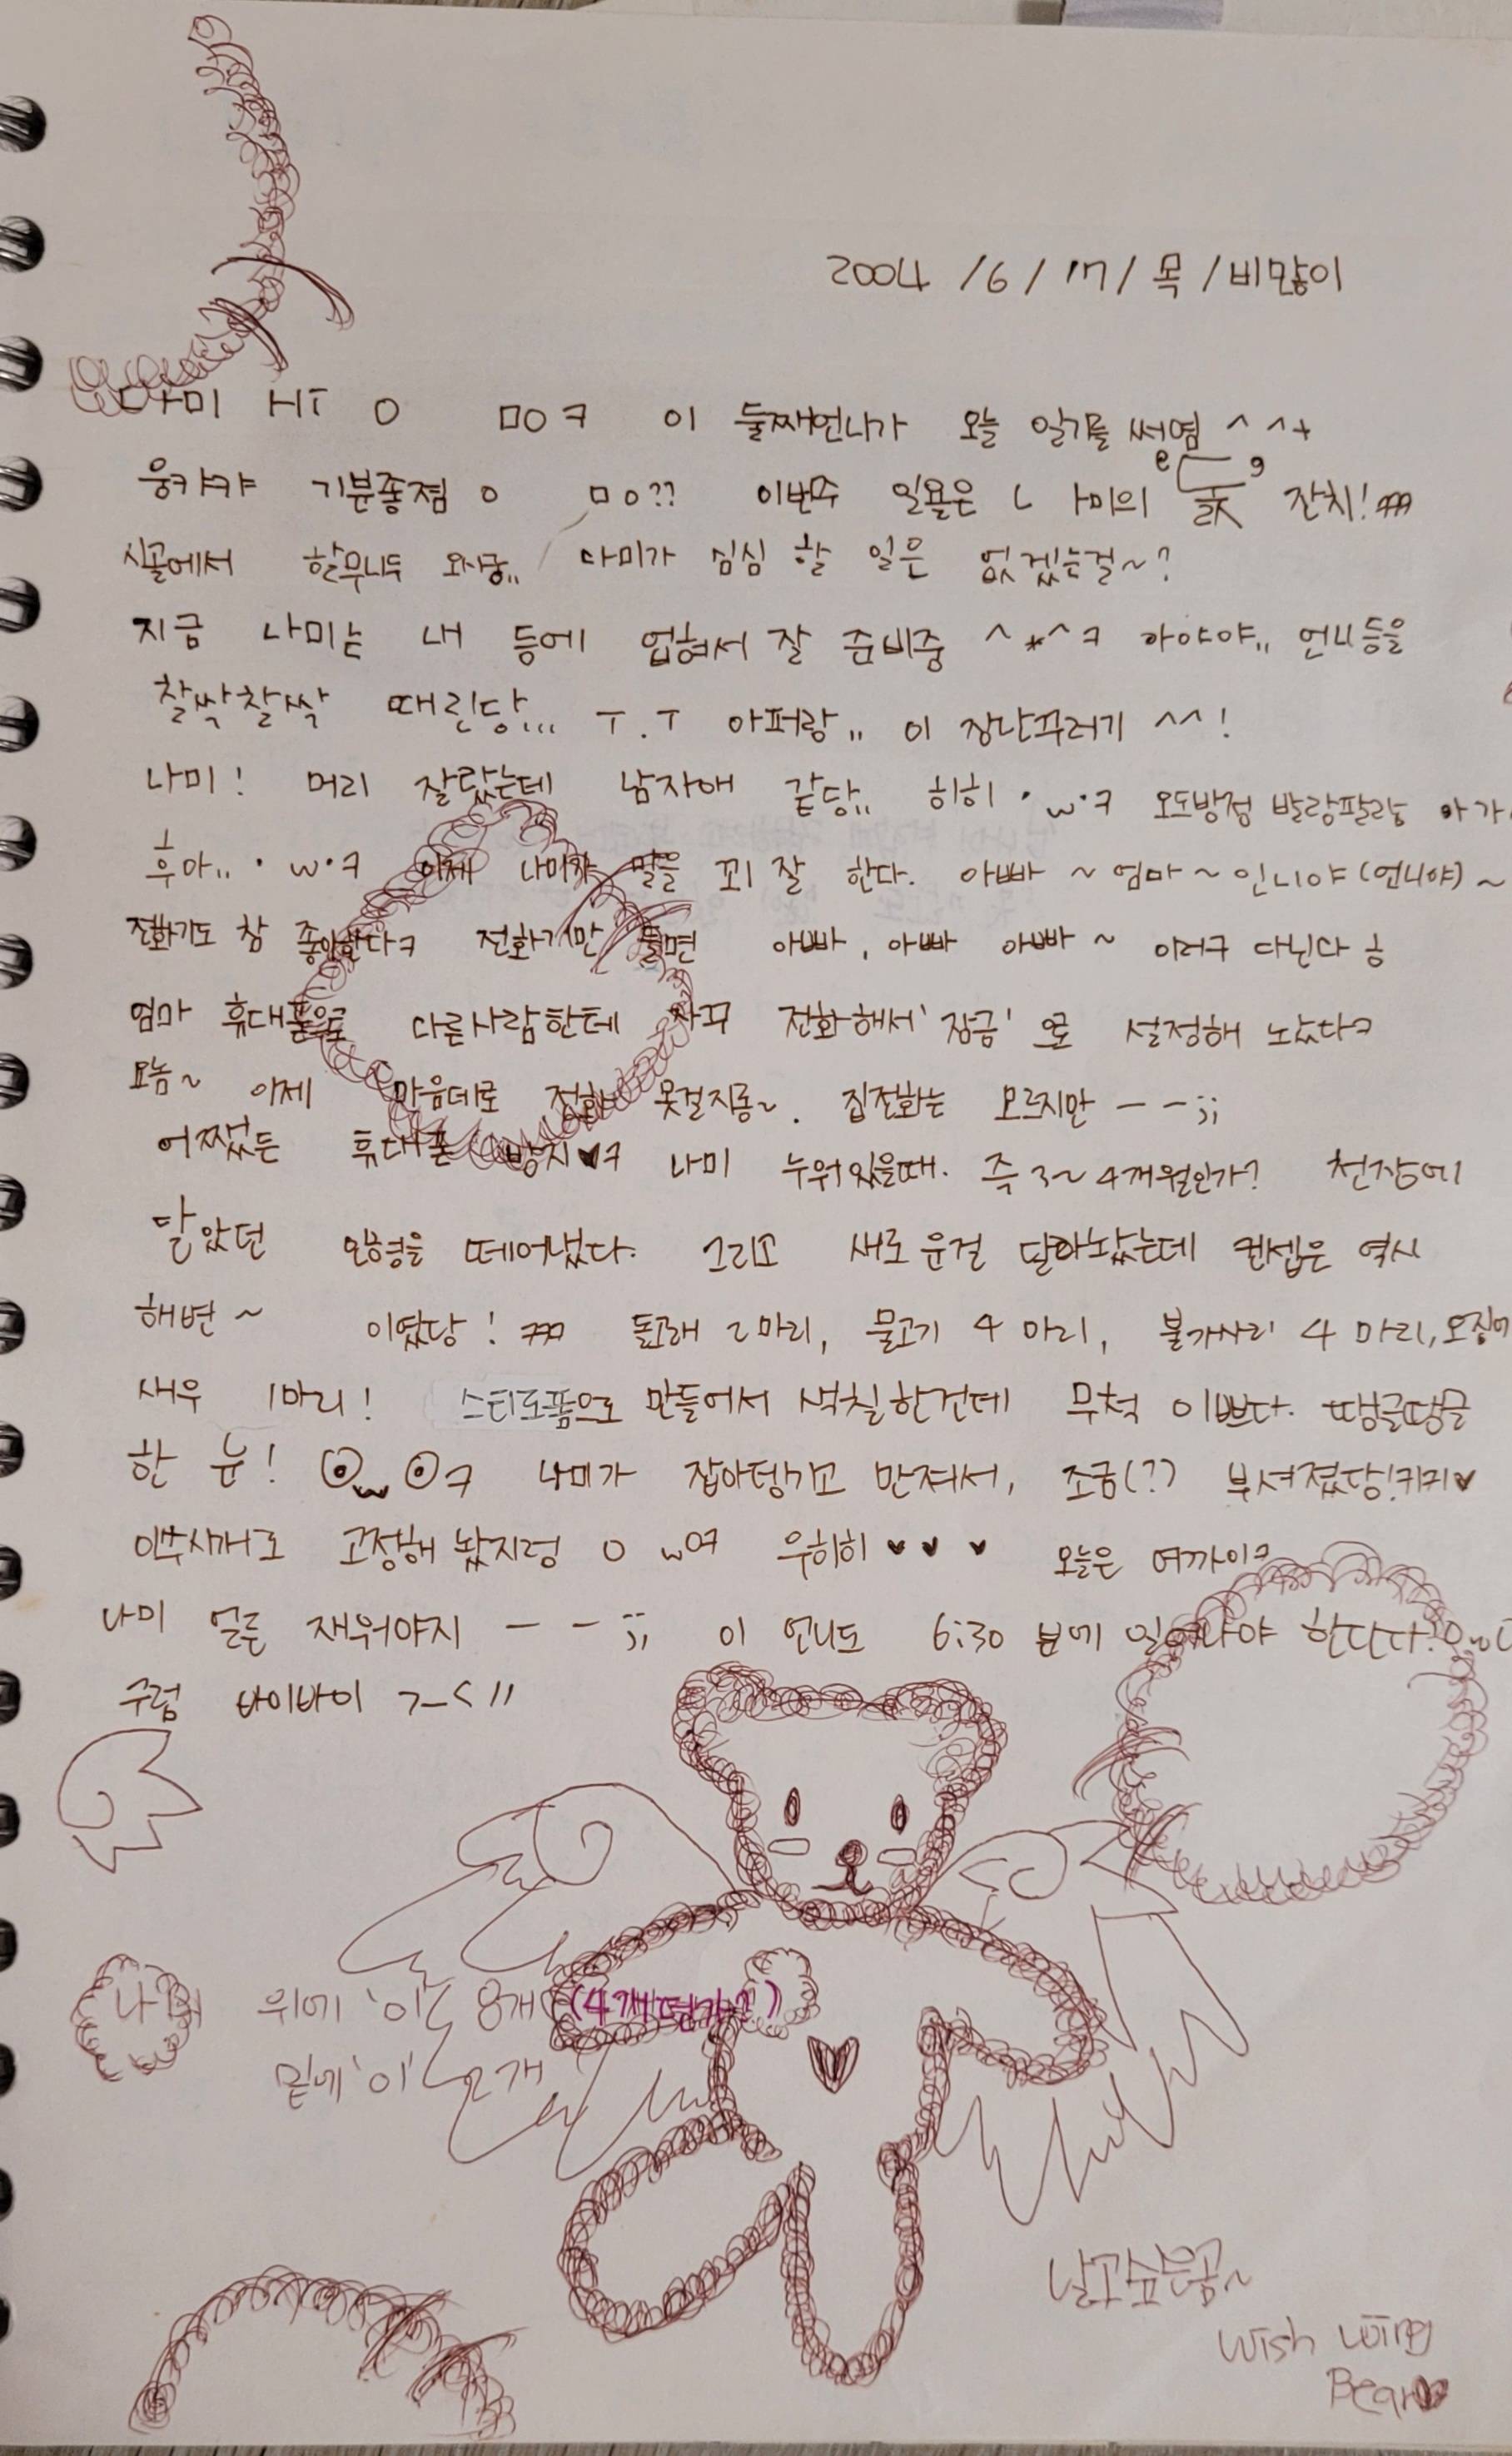 2004 /6/ 17/ 목 / 비많이
나미 Hi ㅇ ㅁㅇㅋ 이 둘째언니가 오늘 일기를 써염 ^ ^+
웅캬캬 기분좋졈 ㅇ ㅁㅇ?? 이번주 일욜은 나미의 돐 잔치! ㅋㅋㅋ
시골에서 할무니두 오시궁,, 나미가 심심 할 일은 없겠는걸~?
지금 나미는 내 등에 업혀서 잘 준비중 ^*^ㅋ 아야야,, 언니등을
찰싹찰싹 때린당,,, ㅜ.ㅜ 아퍼랑,, 이 장난꾸러기 ^^!
나미! 머리 잘랐는데 남자애 같당,, 히히 ·w·ㅋ 오도방정 발랑팔랑 아가
후아,, ·w·ㅋ 이제 나미가 말을 꾀 잘 한다. 아빠 ~ 엄마 ~ 인니야 (언니야) ~
전화기도 참 좋아한다ㅋ 전화기만 들면 아빠, 아빠 아빠 ~ 이러구 다닌다 ㅎ
엄마 휴대폰으로 다른사람한테 자꾸 전화해서 '잠금' 으로 설정해 노았다ㅋ
요놈~ 이제 마음데로 전화 못걸지롱~. 집전화는 모르지만 ㅡㅡ;;
어쨌든 휴대폰 방지♥ㅋ 나미 누워있을때. 즉 3~4개월인가? 천장에
달았던 인형을 떼어냈다. 그리고 새로운걸 달아놨는데 컨셉은 역시
해변 ~ 이였당! ㅋㅋㅋ 돌고래 2마리, 물고기 4마리, 불가사리 4마리, 오징어
새우 1마리! 스티로폼으로 만들어서 색칠한건데 무척 이쁘다. 땡글땡글
한 눈! ⊙w⊙ㅋ 나미가 잡아댕기고 만져서, 조금(?) 부셔졌당!키키♥
이쑤시개로 고정해 놨지렁 ㅇ wㅇㅋ 우히히 ♥ ♥ ♥ 오늘은 여까이ㅋ
나미 얼른 재워야지 ㅡㅡ;; 이 언니도 6:30 분에 일어나야 한다다?
구럼 바이바이 >_< //
나미 위에 '이' 8개 (4개떵가?)
밑에 '이' 2개
날고싶은곰~
Wish Wing
Bear♥